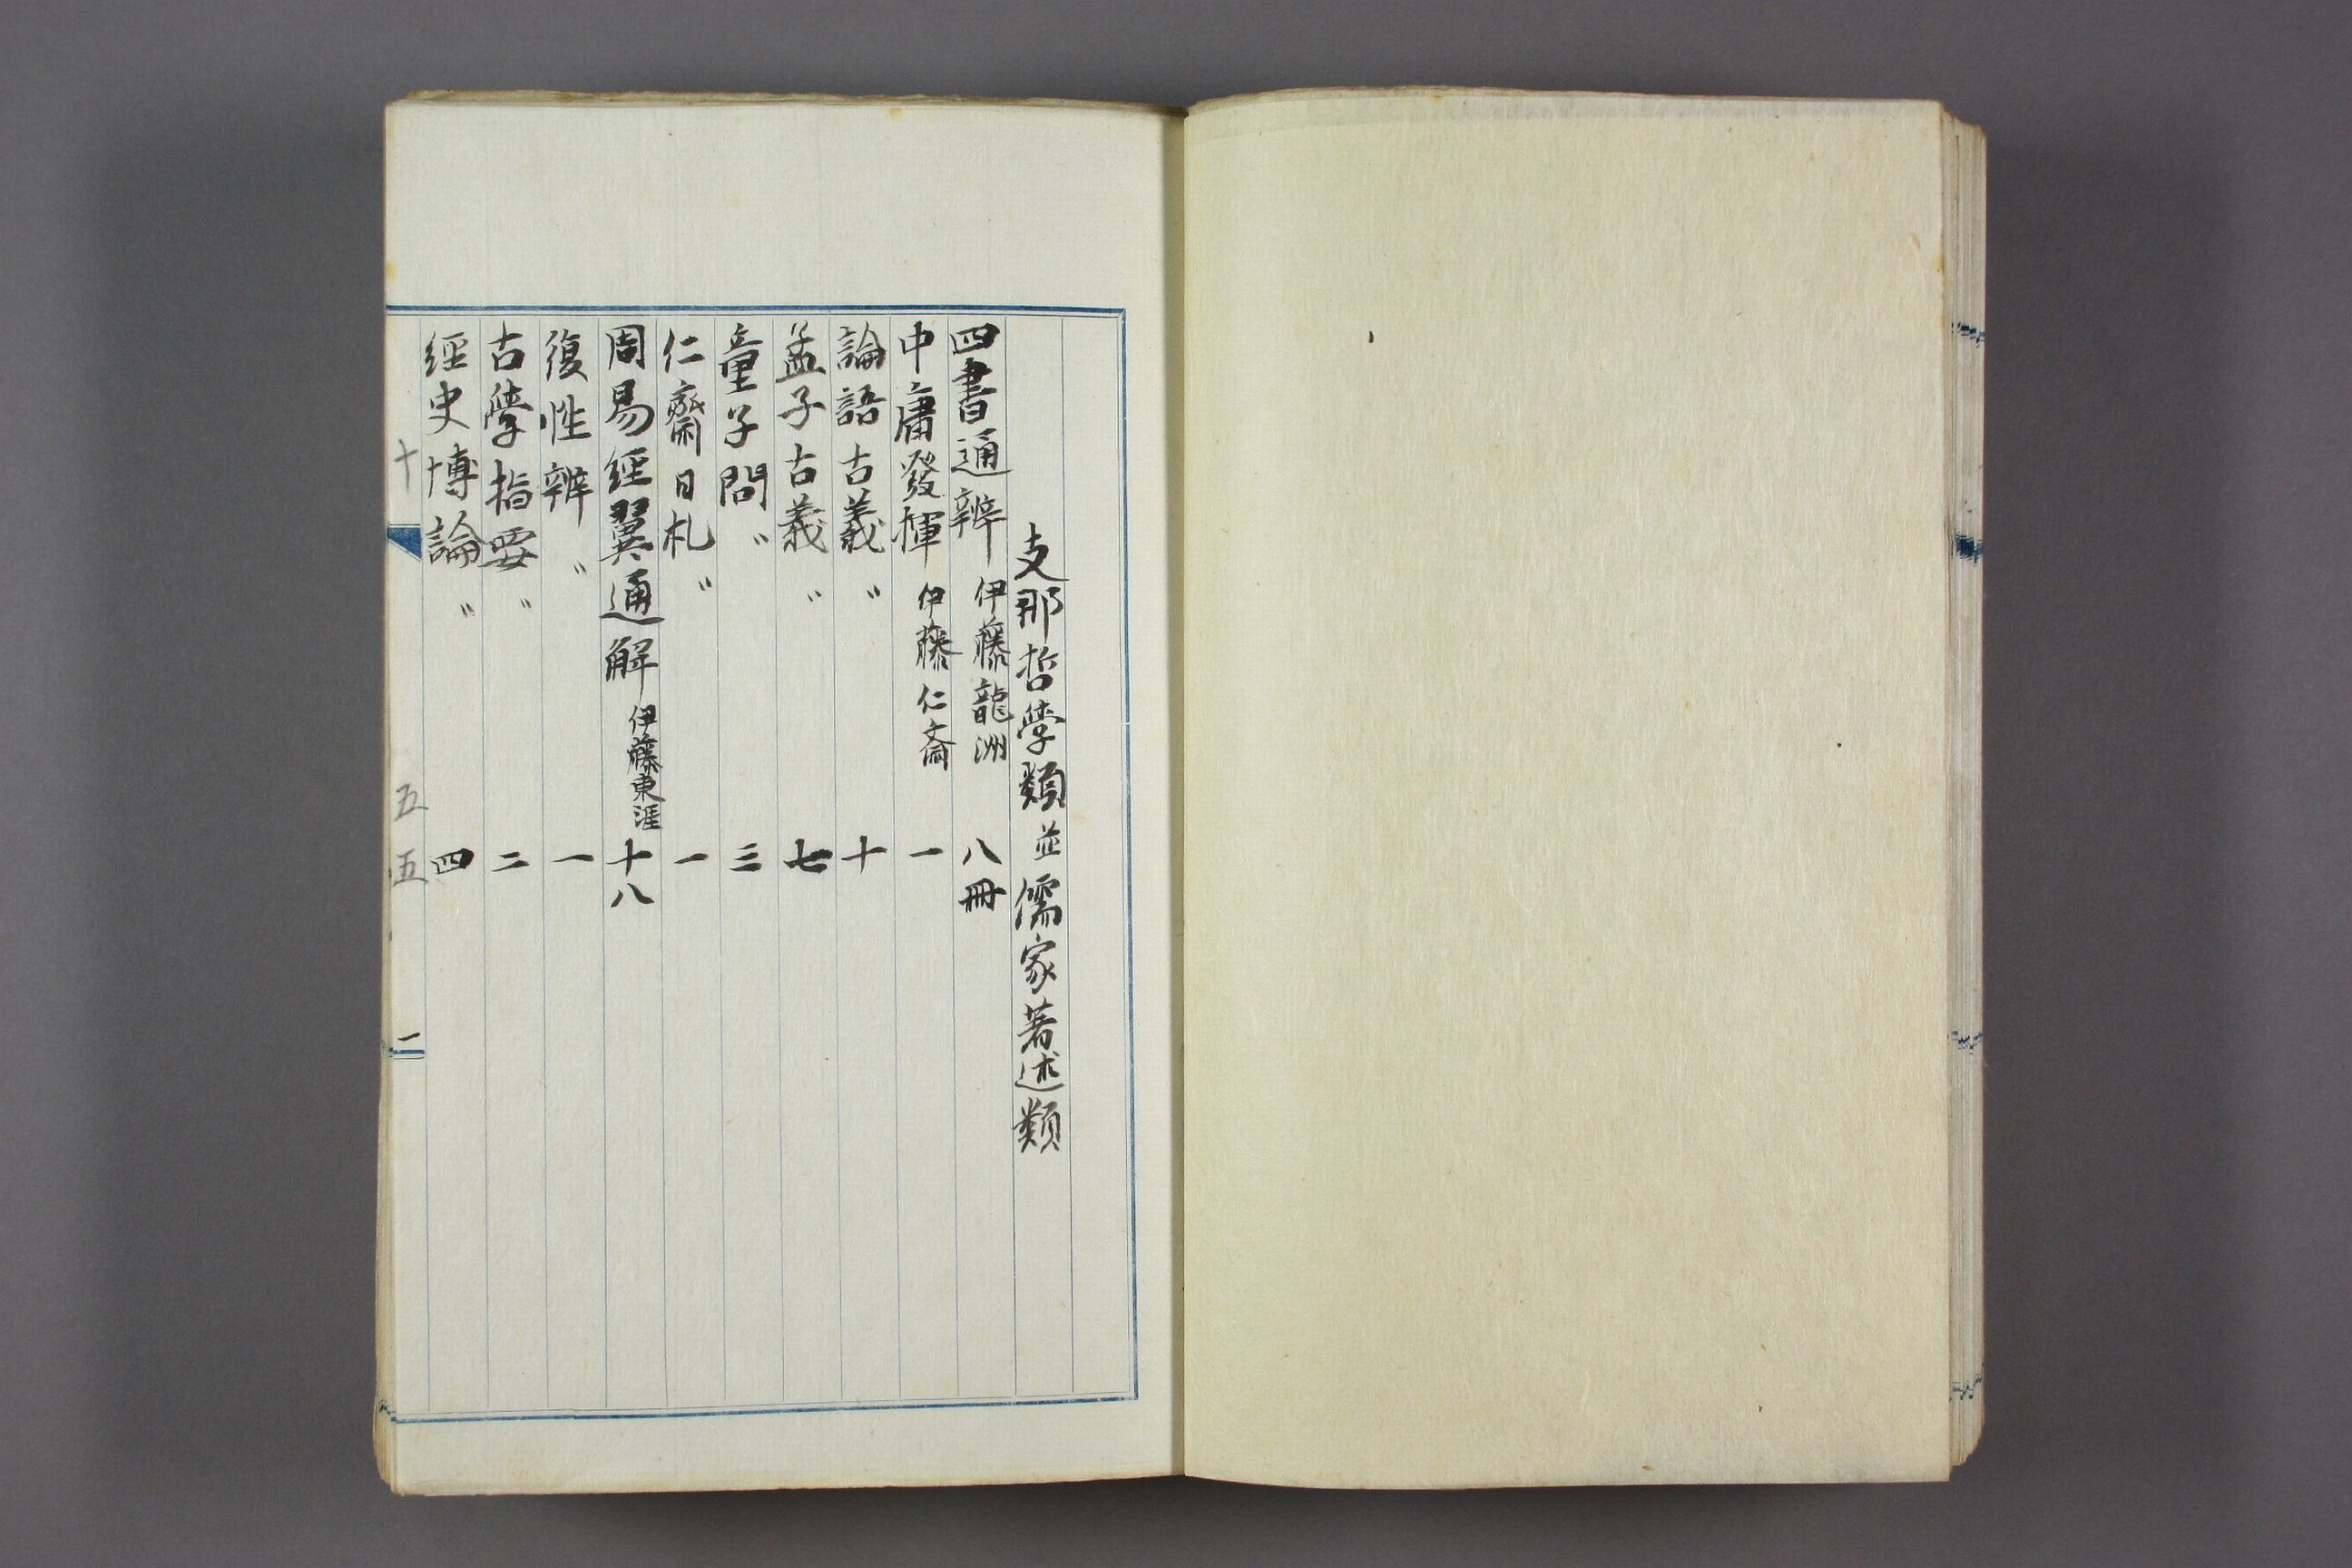 支那哲學類並儒家著述類
四書通辨 伊藤龍洲 八冊
中庸發揮 伊藤仁斎 一
論語古義 〃 十
孟子古義 〃 七
童子問 〃 三
仁齋日札 〃 一
周易經翼通解 伊藤東涯 十八
復性辨 〃 一
古學指要 〃 二
經史博論 〃 四
十 五五
一